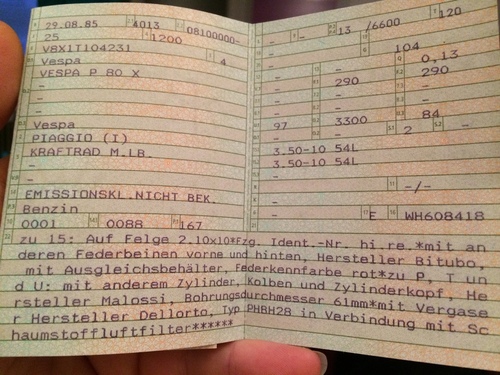 29.08.85 4013 08100000-
25 1200
V8X1T104231
Vespa 4
VESPA P 80 X
-
-
-
Vespa
PIAGGIO (I)
KRAFTRAD M.LB.
-
-
EMISSIONSKL.NICHT BEK.
Benzin
0001 0088 167
- - 13 /6600 120
104
- - 0,13
- 290 290
- - -
- - -
97 3300 84
- 2 -
3.50-10 54L
3.50-10 54L
-
- -/-
-
E WH608418
zu 15: Auf Felge 2.10x10*Fzg. Ident.-Nr. hi.re.*mit an
deren Federbeinen vorne und hinten, Hersteller Bitubo,
mit Ausgleichsbehälter, Federkennfarbe rot*zu P, T un
d U: mit anderem Zylinder, Kolben und Zylinderkopf, He
rsteller Malossi, Bohrungsdurchmesser 61mm*mit Vergase
r Hersteller Dellorto, Typ PHBH28 in Verbindung mit Sc
haumstoffluftfilter******